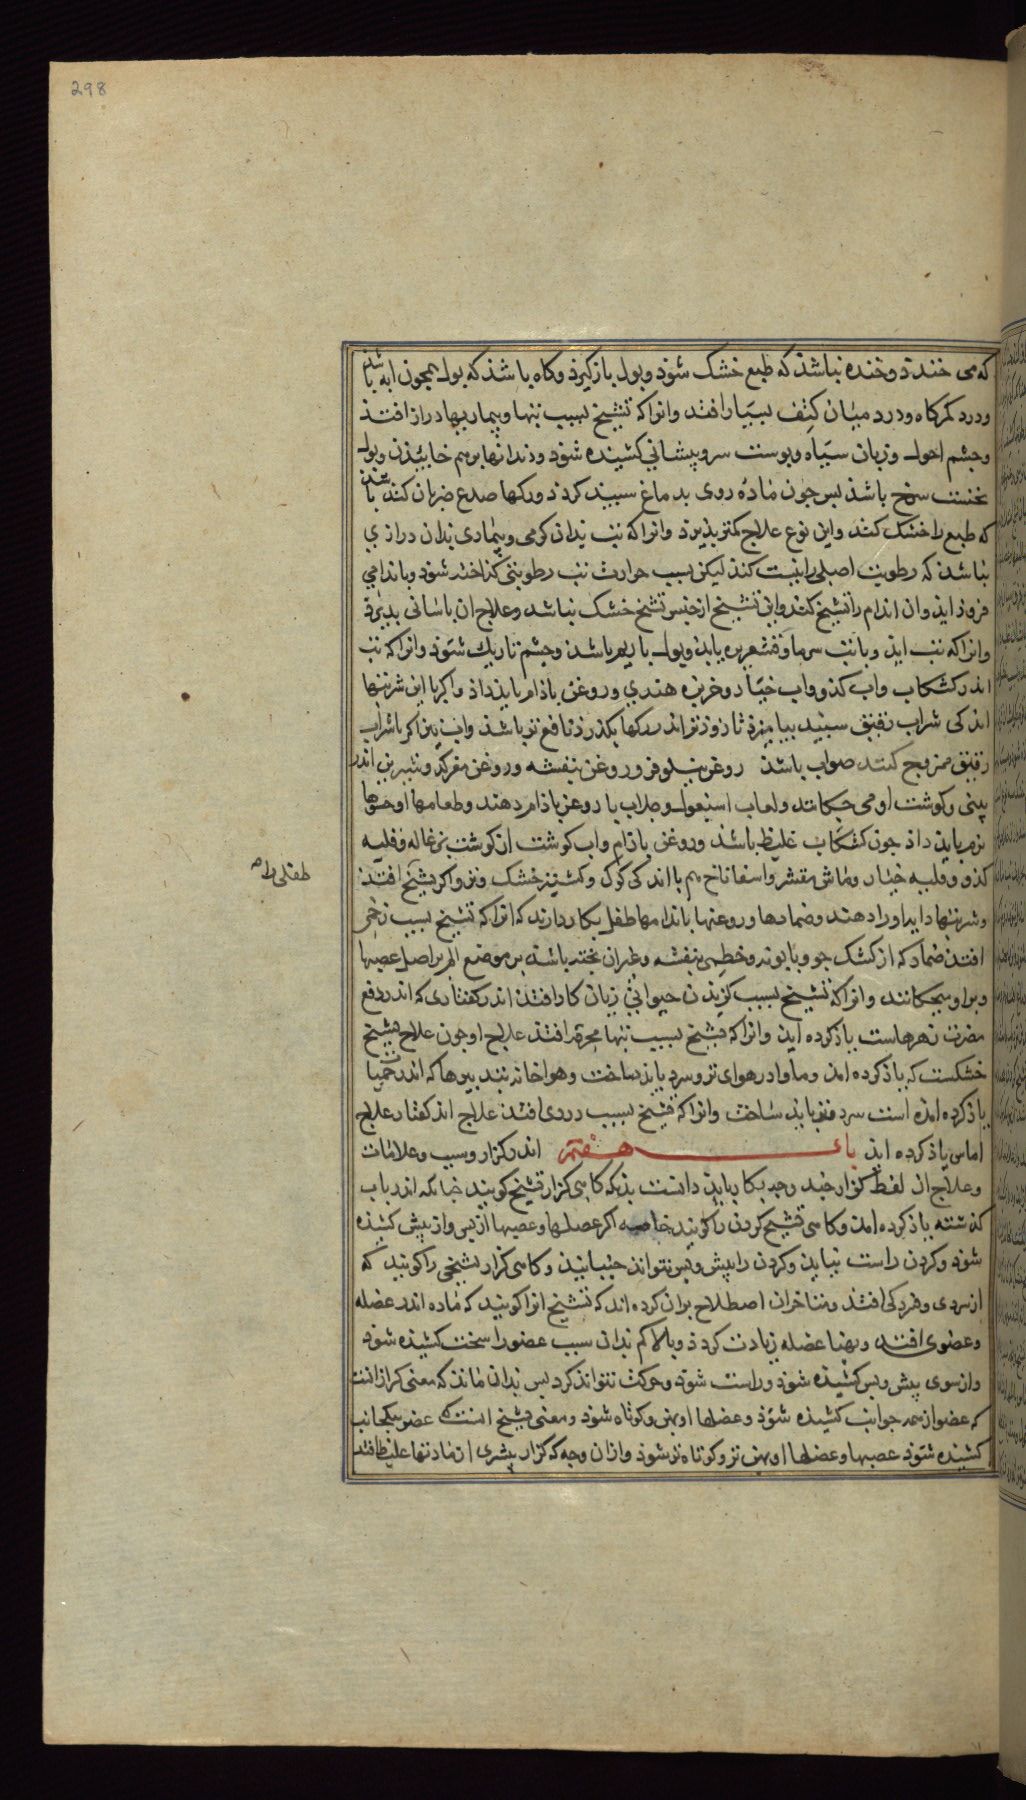 298
که می خندد و خنده نباشذ که طبع خشک شود و بول باز گیرد وکاه باشذ که بول همجون ابه باشد
ودرد کمرکاه ودرد میان کتف بسیار افتد وانرا که تشنج بسبب تبها وبیماریها دراز افتذ
وجشم احول وزبان سیاه وبوست سر وپیشانی کشیده شوذ ودندانها برهم خاییذن وبول
نخست سرخ باشذ بس جون ماده روی بدماغ سبید کردد ورکها صدغ ضربان کند باشد
که طبع را خشک کند واین نوع علاج کمتر بذیرد وانرا که تب بدان کرمی وبیماری بدان درازی
نباشد که رطوبت اصلی را نیست کند لیکن بسبب حرارت تب رطوبتی کذاخته شود وباندامی
فروذ ایذ وان اندام را تشنج کند واین تشنج از جنس تشنج خشک نباشد وعلاج ان باسانی بدیرد
وانرا که تب ایذ وبا تب سرما وقشعریره یابد وبول باریم باشد وجشم تاریک شود وانرا که تب
اندر کشکاب واب کذو واب خیار وخربزه هندی وروغن باذام بایذ داذ واکر با این شربتها
اندکی شراب رقیق سبید بیامیزد تا زودتر اندر رکها بکذرد نافع تر باشذ واب نیز اکر با شراب
رقیق ممزوج کنند صواب باشذ روغن نیلوفر وروغن بنفشه وروغن مغز کدو شیرین اندر
بینی وکوشت او می جکانند ولعاب اسبغول وجلاب با روغن باذام دهند وطعامها او حسوها
نرم بایذ داذ جون کشکاب غلیظ باشذ وروغن باذام واب کوشت از کوشت بزغاله وقلیه
کذو وقلیه خیار وماش مقشر واسفاناخ هم با اندکی کوک وکشنیز خشک وتر واکر تشنج افتد
وشربتها دایه اورا دهند وضمادها وروغنها باندامها طفل بکار دارند که انرا که تشنج بسبب زخمی
افتد ضماد که از کشک جو وبابونه وخطمی وبنفشه وغیران بخته باشد بر موضع الم بر اصل عصبها
وبر او میجکانند وانرا که تشنج بسبب کزیدن حیوانی زیان کار افتذ اندر کفتاری که اندر دفع
مضرت زهرهاست یاذ کرده ایذ وانرا که تشنج بسبب تبها محرقه افتذ علاج او جون علاج تشنج
خشکست که یاذ کرده امد وماوا در هوای تر وسرد بایذ ساخت وهوا خانه بتدبیرها که اندر تبها
یاذ کرده امده است سرد وتر بایذ ساخت وانرا که تشنج بسبب وروی افتد علاج اندر کفتار علاج
اماس یاذ کرده ایذ باب هفتم اندر کزاز وسبب وعلامات
وعلاج ان لفظ کزاز جند وجه بکار بایذ دانست بذانکه کاهی کزاز تشنج کویند جنانکه اندر باب
کذشته یاذ کرده امد وکاهی تشنج کردن را کویند خاصه اکر عضلها وعصبها از بس واز بیش کشیذه
شوذ وکردن راست بیاید وکردن را بیش وبس نتواند جنبانیذ وکاهی کزاز تشنجی را کویند که
از سردی وفردکی افتذ ومتاخران اصطلاح بران کرده اند که تشنج انرا کویند که ماده اندر عضله
وعضوی افتد وبهنا عضله زیادت کردد وبالا کم بدان سبب عضو را سخت کشیذه شوذ
واز سوی بیش وبس کشیذه شوذ وراست شوذ وحرکت نتواند کرد بس بدان ماند که معنی کزاز انست
که عضو از همه جوانب کشیذه شوذ وعضلها او بهن وکوتاه شوذ ومعنی تشنج انست که عضو بیکجانب
کشیذه شوذ عصبها وعضلها او بهن تر وکوتاه تر شوذ وازان وجه که کزاز بیشتری از مادتها غلیظ افتد